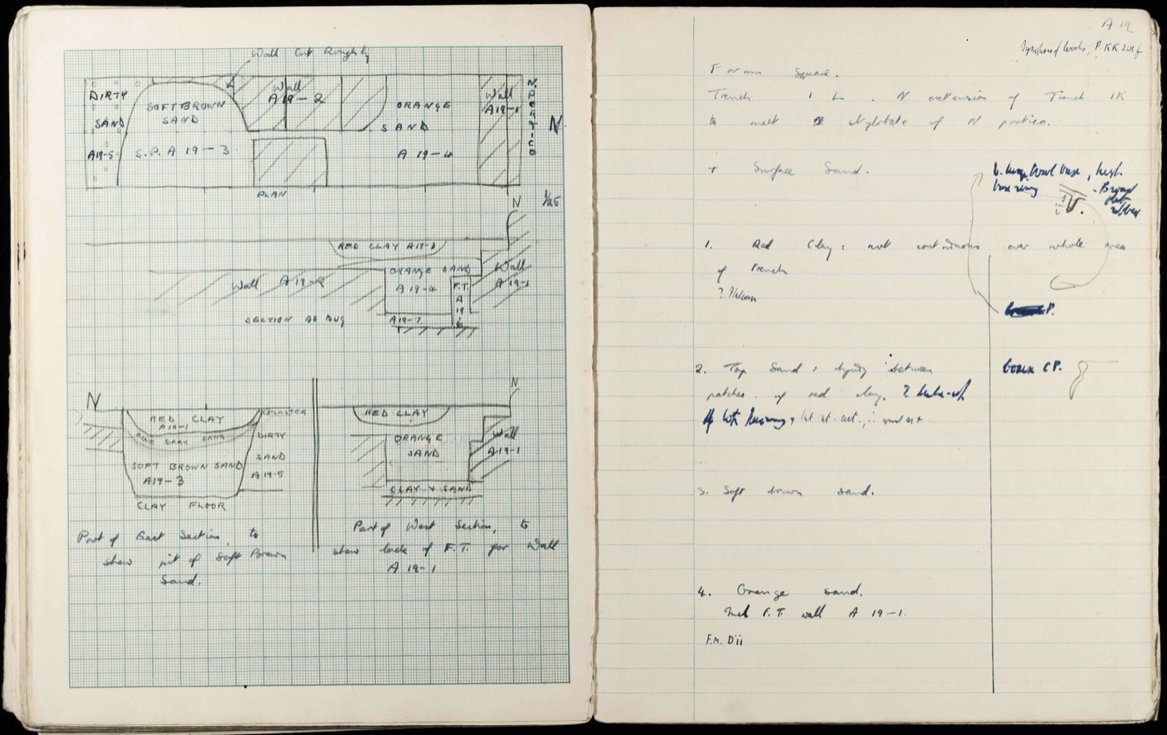 Wall Cut Roughly
DIRTY
SAND
A19-5
SOFT BROWN
SAND
S.P. A 19-3
Wall
A19-2
ORANGE
SAND
A 19-4
Wall
A19-1
N. PORTICO
N
PLAN
1/25
N
RED CLAY A19-1
ORANGE SAND
A 19-4
Wall A19-2
F.T.
A
19
Wall
A19-1
SECTION AS DUG
A19-7
N
RED CLAY
A19-1
DARK SAND
PLASTER
DIRTY
SAND
A19-5
SOFT BROWN SAND
A19-3
CLAY FLOOR
N
RED CLAY
ORANGE
SAND
Wall
A19-1
CLAY & SAND
Part of East Section, to
show pit of Soft Brown
Sand.
Part of West Section, to
show lack of F.T. for Wall
A 19-1
A 19
Forum Square.
Trench 1 L. N extension of Trench 1K
to meet stylobate of N portico.
+ Surface Sand.
1. Red Clay: not continuous over whole area
of trench
P.
2. Top Sand: lying between
patches of red clay.
CP.
3. Soft brown sand.
4. Orange sand.
Incl F.T. wall A 19-1.
F.N. Dii